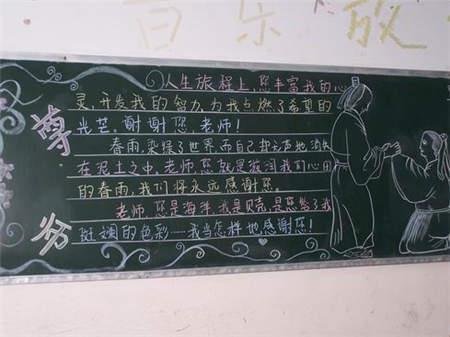 尊
人生旅程上,您丰富我的心
灵,开发我的智力,为我点燃了希望的
光芒。谢谢您,老师!
春雨,染绿了世界,而自己却无声地消失
在泥土之中。老师,您就是滋润我们心田
的春雨,我们将永远感谢您。
老师,您是海洋,我是贝壳,是您给了我
斑斓的色彩……我当怎样地感谢您!